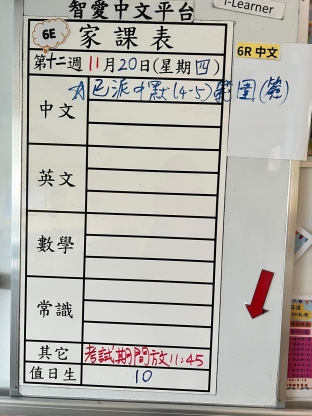 智愛中文平台
i-Learner
6E
家課表
6R 中文
第十二週 11月20日(星期四)
中文
☆已派中默(4-5)範圍(筆)
英文
數學
常識
其它 考試期間放11:45
值日生 10